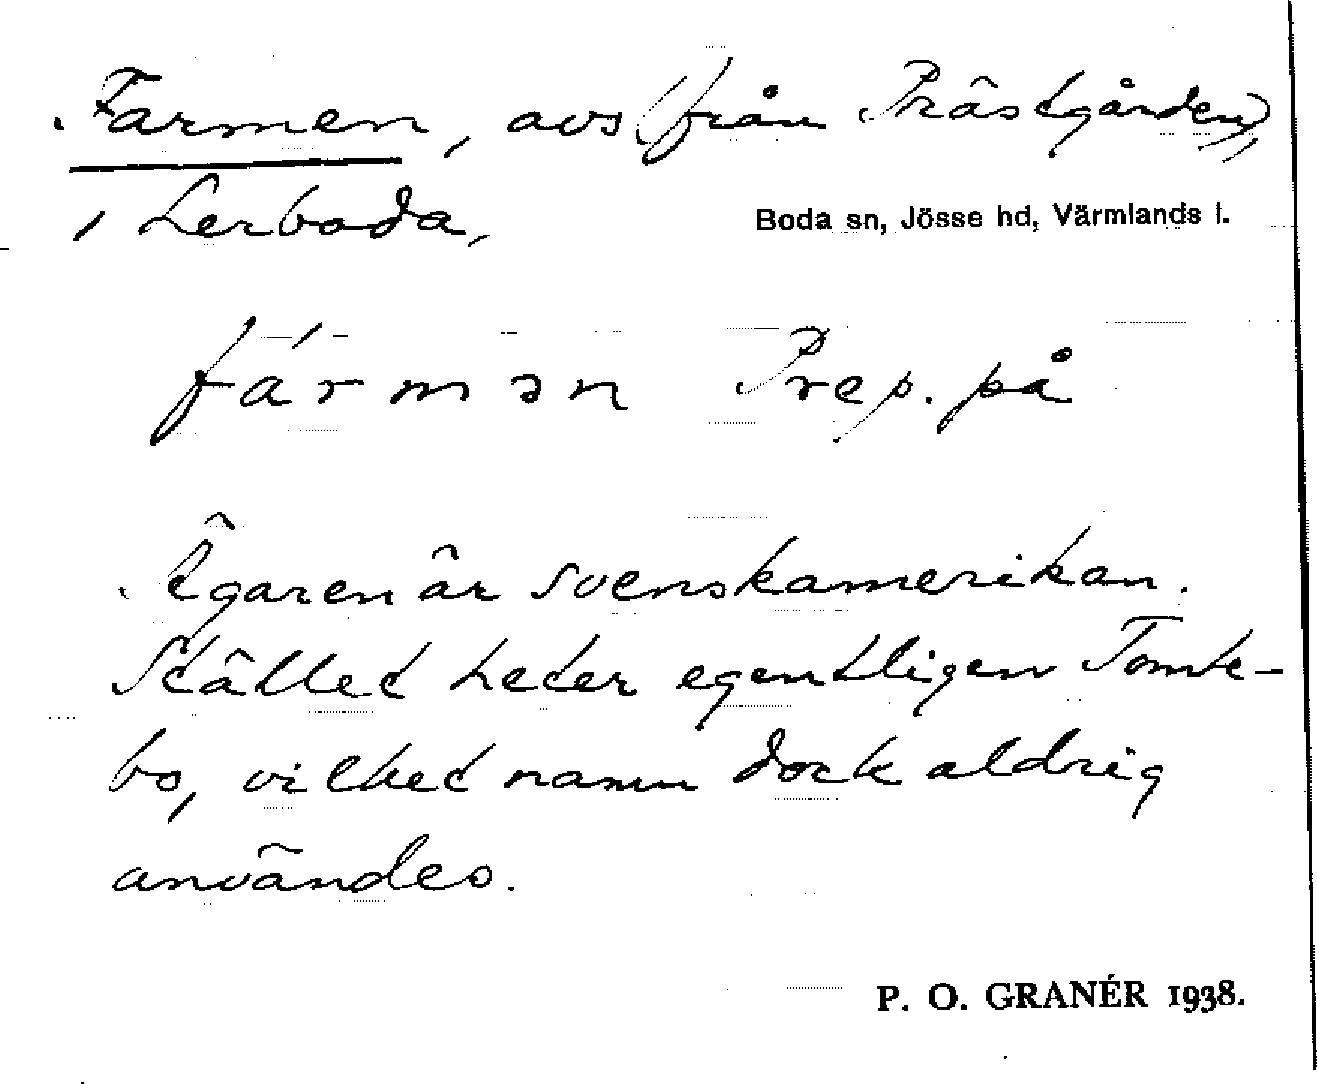 Farmen, avs (från Prästgården)
i Lerboda,
Boda sn, Jösse hd, Värmlands l.
fármən Prep. på
Ägaren är svenskamerikan.
Stället heter egentligen Tomte-
bo, vilket namn dock aldrig
användes.
P. O. GRANÉR 1938.